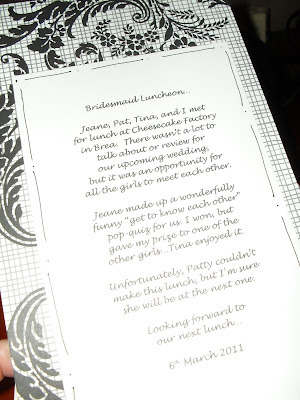 Bridesmaid Luncheon...
Jeane, Pat, Tina, and I met
for lunch at Cheesecake Factory
in Brea. There wasn't a lot to
talk about or review for
our upcoming wedding,
but it was an opportunity for
all the girls to meet each other.
Jeane made up a wonderfully
funny "get to know each other"
pop-quiz for us. I won, but
gave my prize to one of the
other girls...Tina enjoyed it.
Unfortunately, Patty couldn't
make this lunch, but I'm sure
she will be at the next one.
Looking forward to
our next lunch...
6th March 2011